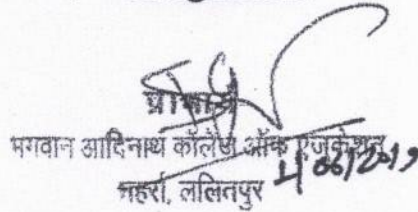 प्राचार्य
भगवान आदिनाथ कॉलेज ऑफ एजुकेशन
महर्रा, ललितपुर 4/06/2019